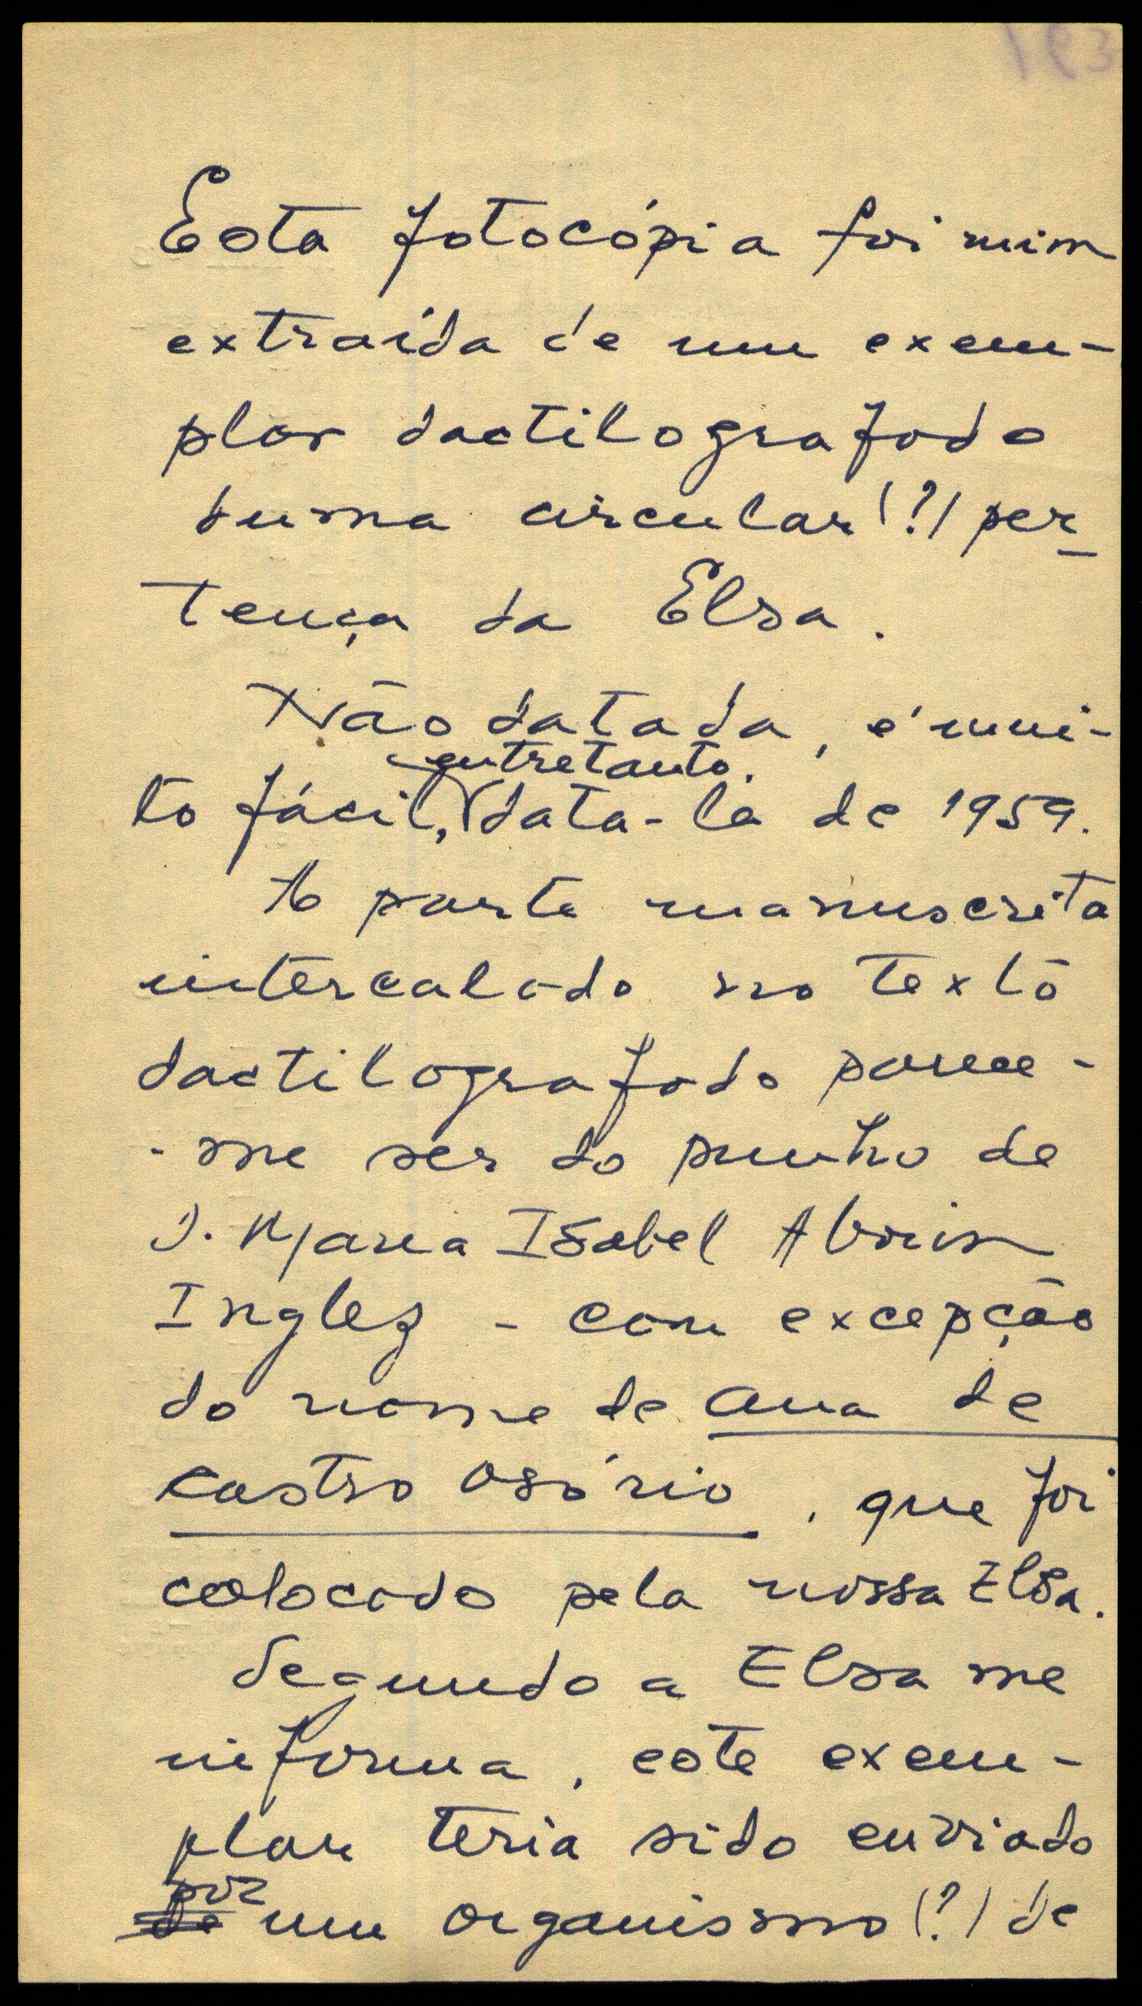 193
Esta fotocópia foi mim
extraída de um exem-
plar dactilografado
duma circular (?) per-
tença da Elsa.
Não datada, é mui-
entretanto.
to fácil, data-la de 1959.
A parte manuscrita
intercalado no texto
dactilografado parece-
-me ser do punho de
D. Maria Isabel Aboim
Inglez - com excepção
do nome de Ana de
Castro Osório, que foi
colocado pela nossa Elsa.
Segundo a Elsa me
informa, este exem-
plar teria sido enviado
por
de um organismo (?) de